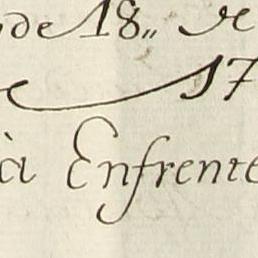 de 18,, de
17
à Enfrente